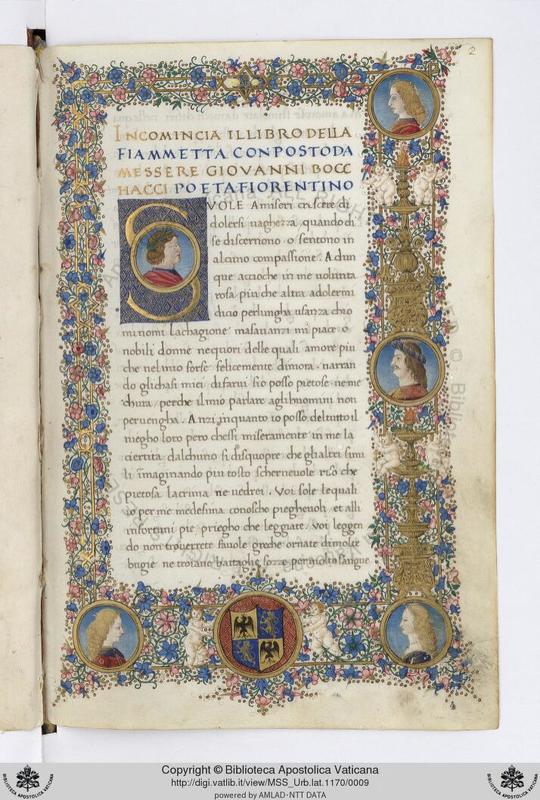 2
INCOMINCIA IL LIBRO DELLA
FIAMMETTA CONPOSTO DA
MESSERE GIOVANNI BOCC
HACCI POETA FIORENTINO
SVOLE A miseri crescere di
dolersi vaghezza quando di
se discernono o sentono in
alcuno compassione. Adun
que accioche in me volunta
rosa piu che altra adolermi
di cio per lungha usanza
minomi lachagione masavanzi mi piace o
nobili donne ne quori delle quali amore piu
che nel mio forse felicemente dimora narran
do gli chasi miei di farvi sio posso pietose ne me
chura perche il mio parlare agli huomini non
pervengha. Anzi inquanto io posso del tutto il
niegho loro pero chessi miseramente in me la
cierbita dalchuno si disquopre che gli altri simi
li imaginando piu tosto schernevole riso che
pietosa lacrima ne vedrei. Voi sole le quali
io per me medesima conoscho pieghevoli et alli
infortuni pie priegho che leggiate. Voi leggen
do non troverrete favole greche ornate di molte
bugie ne troiane battaglie sozze per molto sangue
Copyright © Biblioteca Apostolica Vaticana
http://digi.vatlib.it/view/MSS_Urb.lat.1170/0009
powered by AMLAD-NTT DATA
BIBLIOTECA APOSTOLICA VATICANA
BIBLIOTECA APOSTOLICA VATICANA